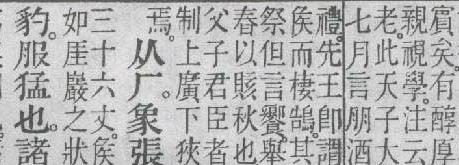 賓矣。有醇厚
親視學。注云
老。此天子大
七月言朋酒
禮。先王即謂
矦而棲鵠。其
祭但言饗舉
春以賅秋也
父子君臣者
制上廣下狹
焉。从厂。象張
三十六丈。矦
如厓巖之狀
豹。服猛也。諸